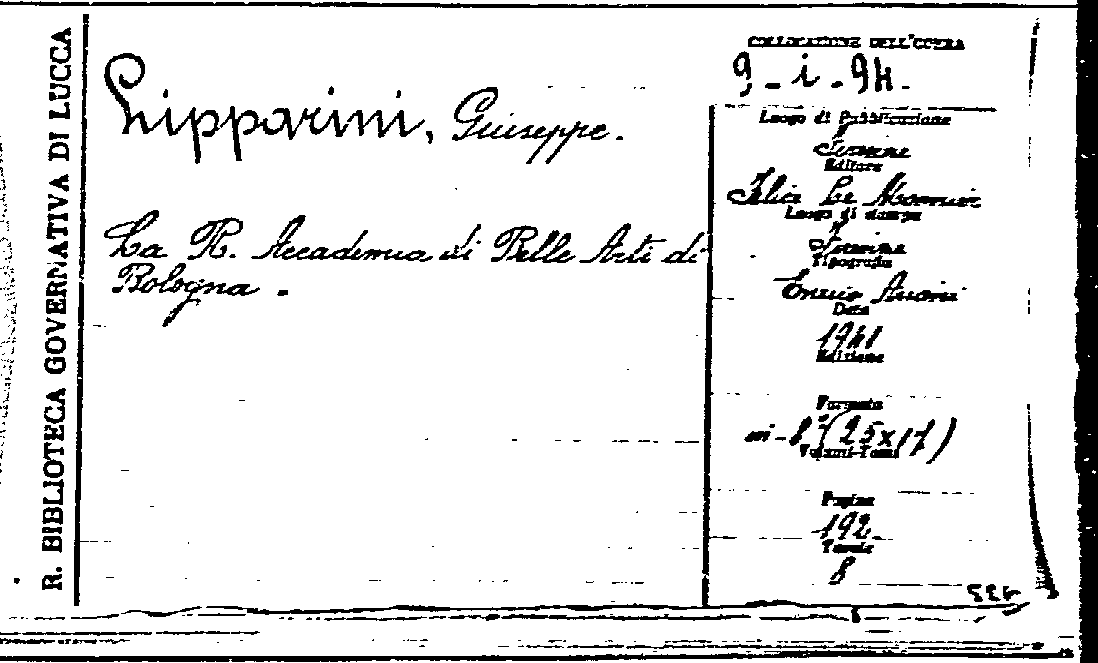 R. BIBLIOTECA GOVERNATIVA DI LUCCA
Lipparini, Giuseppe.
La R. Accademia di Belle Arti di
Bologna.
COLLOCAZIONE DELL'OPERA
9-i-94.
Luogo di Pubblicazione
Firenze
Editore
Felice Le Monnier
Luogo di stampa
Firenze
Tipografia
Ariani
Data
1941
Edizione
Formato
in-8° (25x17)
Volumi-Tomi
Pagine
192
Tavole
8